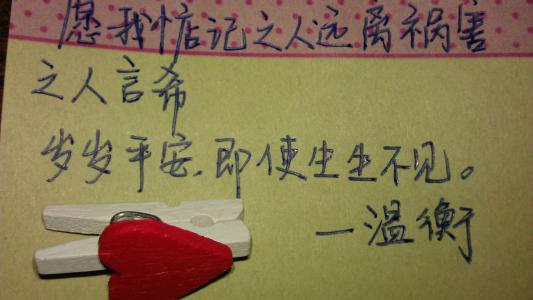 愿我惦记之人远离祸害
之人言希
岁岁平安.即使生生不见。
—温衡